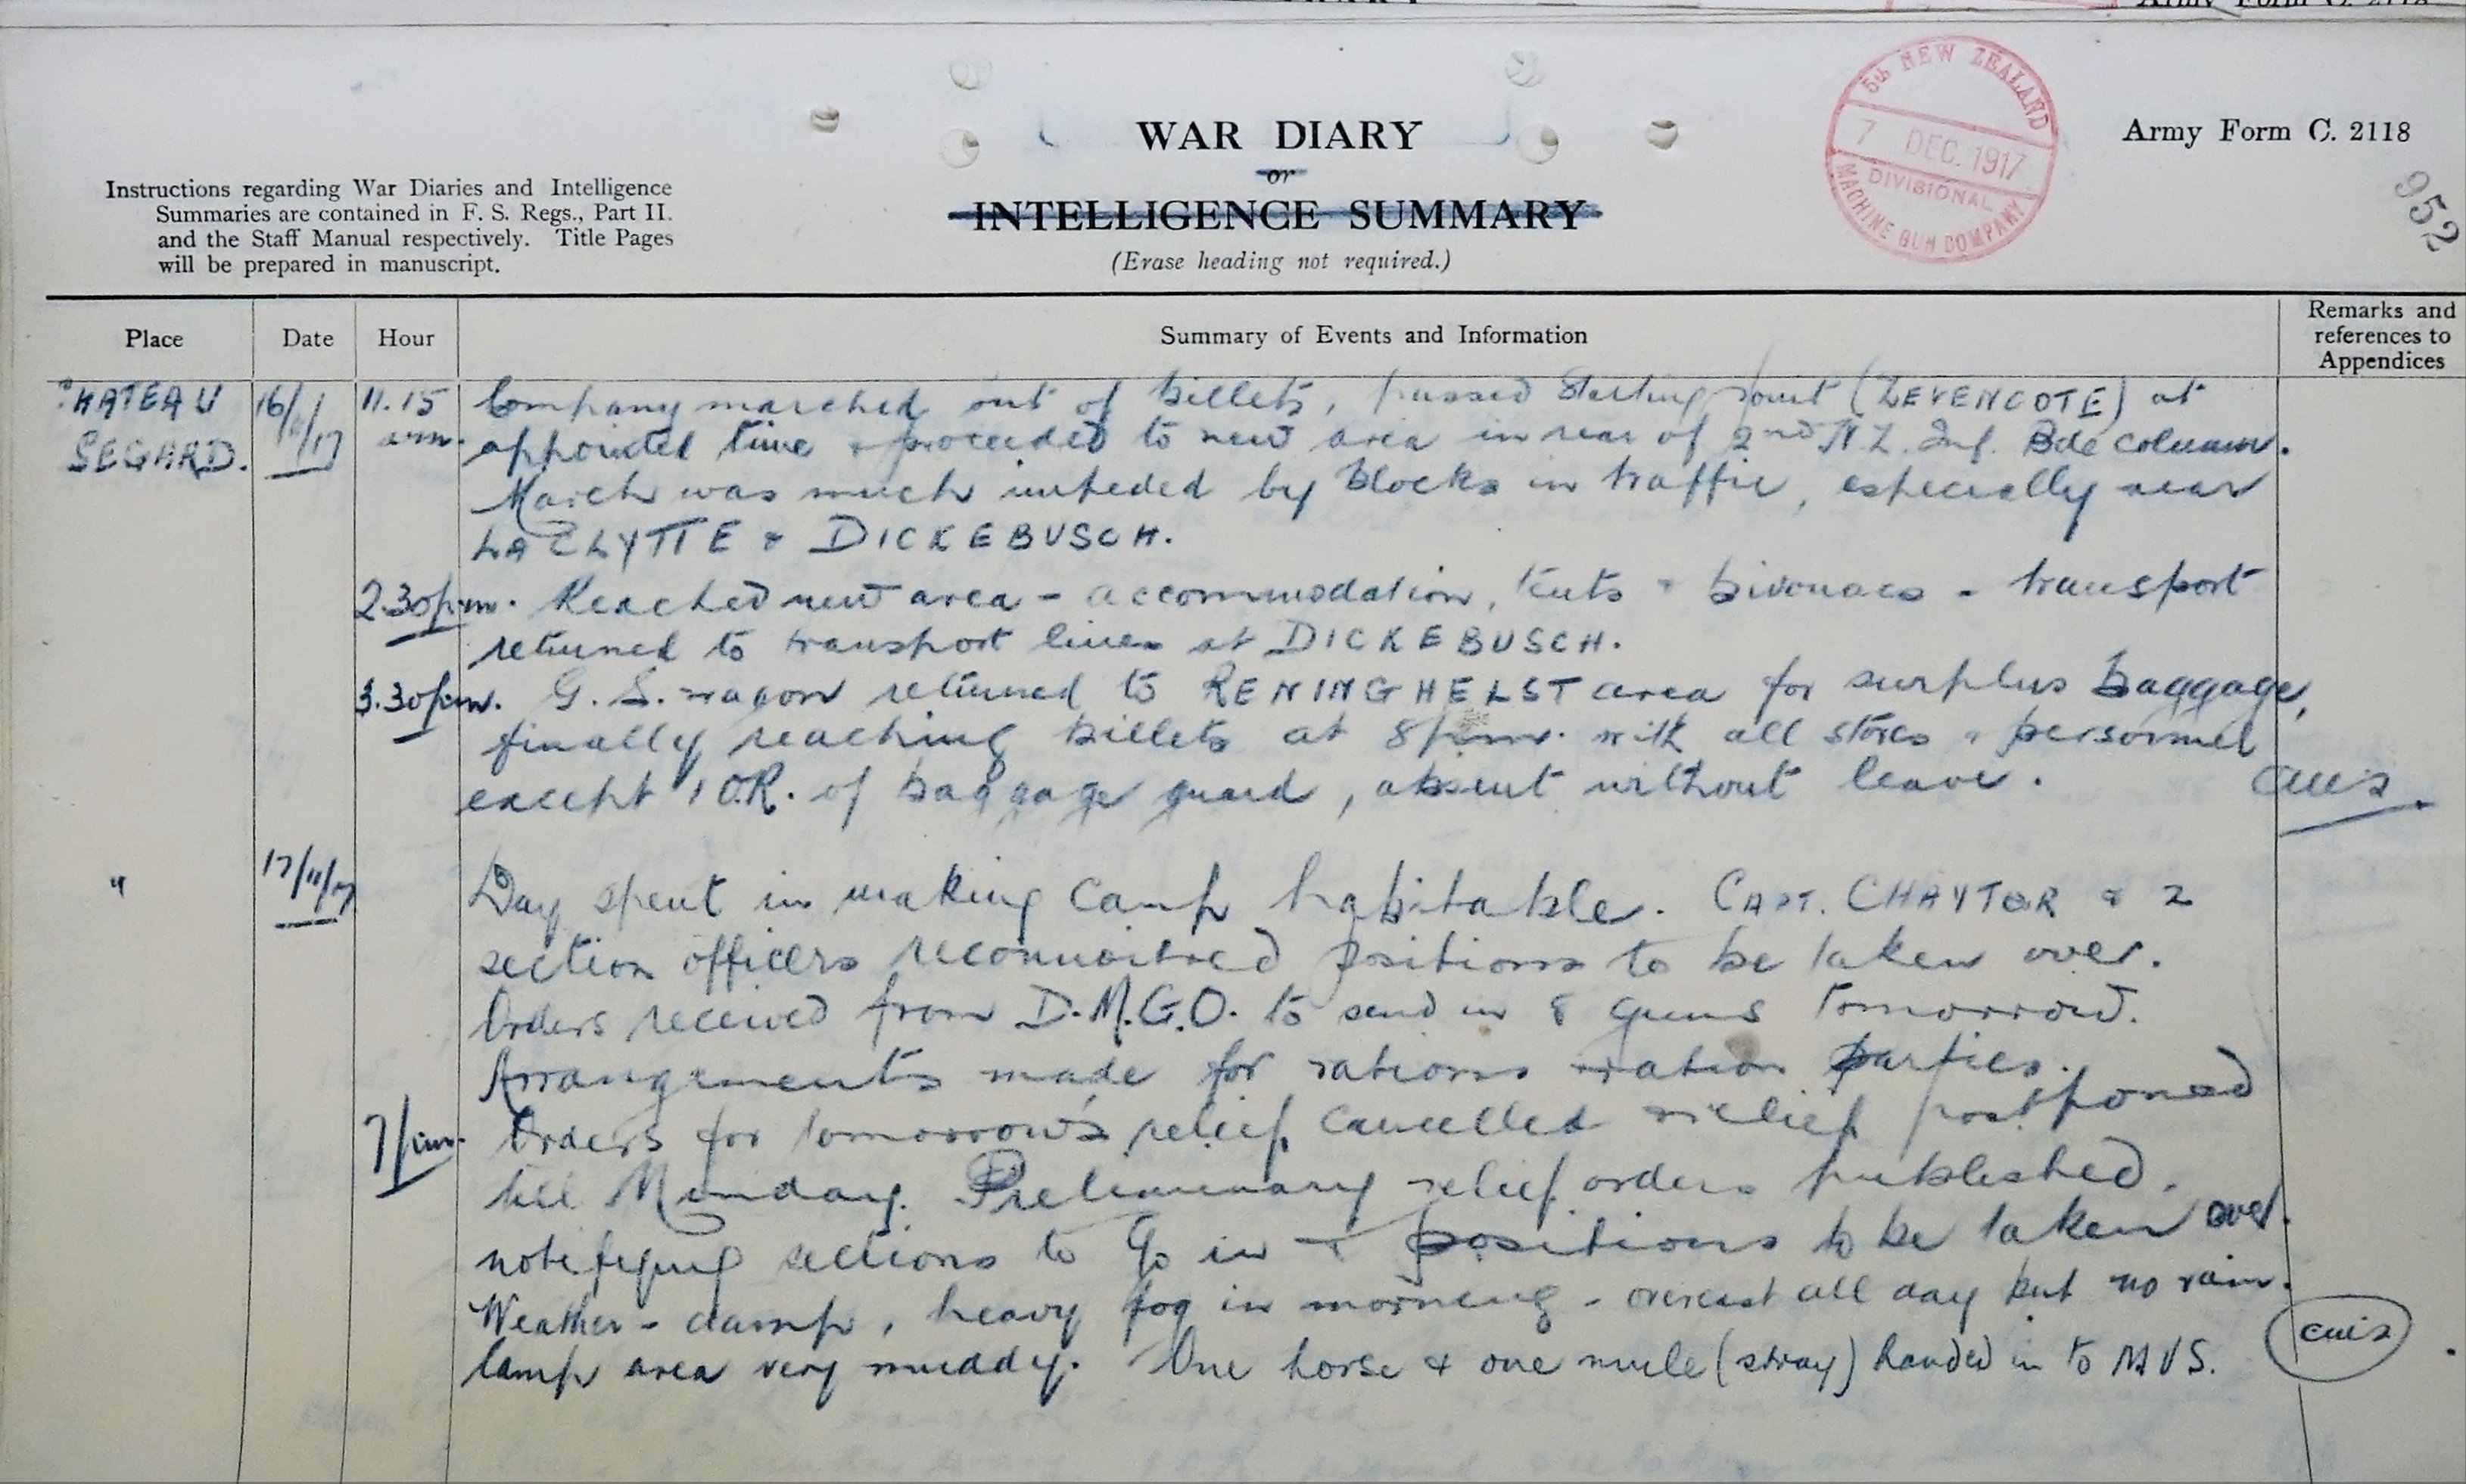 Army Form C. 2118
5th NEW ZEALAND
7 DEC. 1917
DIVISIONAL
MACHINE GUN COMPANY
952
WAR DIARY
or
INTELLIGENCE SUMMARY
(Erase heading not required.)
Army Form C. 2118
Instructions regarding War Diaries and Intelligence
Summaries are contained in F. S. Regs., Part II.
and the Staff Manual respectively. Title Pages
will be prepared in manuscript.
Place Date Hour Summary of Events and Information Remarks and references to Appendices
CHATEAU 16/11/17 11.15 Company marched out of billets, passed starting point (ZEVENCOTE) at
SEGARD. am. appointed time & proceeded to new area in rear of 2nd N.Z. Inf. Bde column.
March was much impeded by blocks in traffic, especially near
LA CLYTTE & DICKEBUSCH.
2.30pm. Reached new area - accommodation, tents & bivouacs - transport
returned to transport lines at DICKEBUSCH.
3.30pm. G.S. wagon returned to RENINGHELST area for surplus baggage,
finally reaching billets at 8pm. with all stores & personnel
except 1 O.R. of baggage guard, absent without leave.
" 17/11/17 Day spent in making camp habitable. CAPT. CHAYTOR & 2
section officers reconnoitred positions to be taken over.
Orders received from D.M.G.O. to send in 8 guns tomorrow.
Arrangements made for rations & ration parties.
7pm. Orders for tomorrow's relief cancelled & relief postponed
till Monday. Preliminary relief orders published,
notifying sections to go in & positions to be taken over.
Weather - damp, heavy fog in morning - overcast all day but no rain.
Camp area very muddy. One horse & one mule (stray) handed in to MVS.